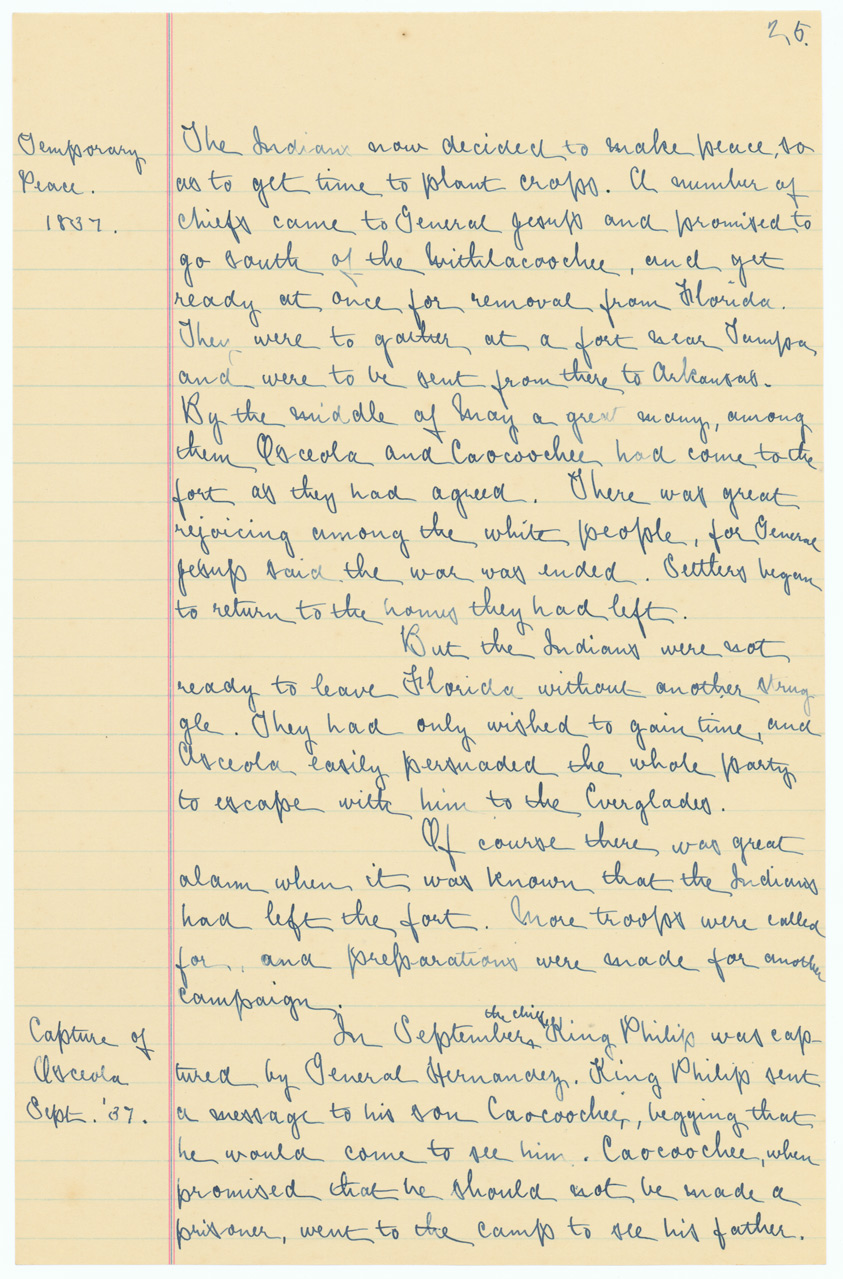 25.
Temporary
Peace.
1837.
The Indians now decided to make peace, so
as to get time to plant crops. A number of
chiefs came to General Jesup and promised to
go south of the Withlacoochee, and get
ready at once for removal from Florida.
They were to gather at a fort near Tampa
and were to be sent from there to Arkansas.
By the middle of May a great many, among
them Osceola and Caocoochee had come to the
fort as they had agreed. There was great
rejoicing among the white people, for General
Jesup said the war was ended. Settlers began
to return to the homes they had left.
But the Indians were not
ready to leave Florida without another strug
gle. They had only wished to gain time, and
Osceola easily persuaded the whole party
to escape with him to the Everglades.
Of course there was great
alarm when it was known that the Indians
had left the fort. More troops were called
for, and preparations were made for another
campaign.
Capture of
Osceola
Sept. '37.
the chief
In September, King Philip was cap-
tured by General Hernandez. King Philip sent
a message to his son Caocoochee, begging that
he would come to see him. Caocoochee, when
promised that he should not be made a
prisoner, went to the camp to see his father.